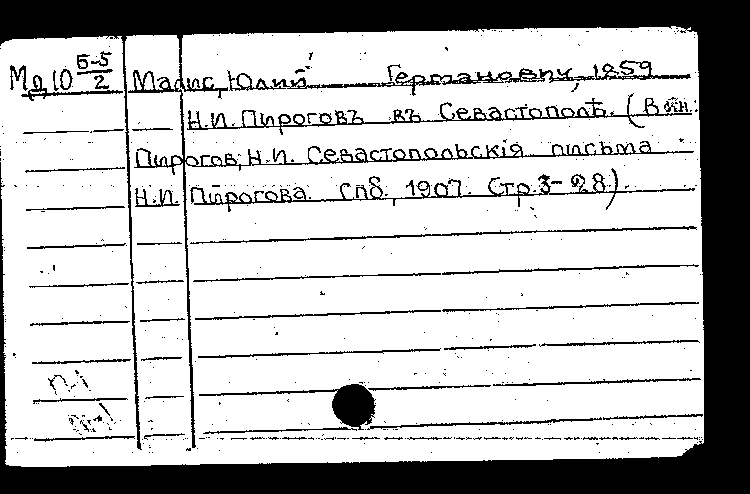 Мр,10 Б-5/2 Малис, Юлий Германович, 1859
Н.И. Пироговъ въ Севастополѣ. (В кн:
Пирогов, Н.И. Севастопольскія письма
Н.И. Пирогова. Спб., 1907. Стр. 3-28).